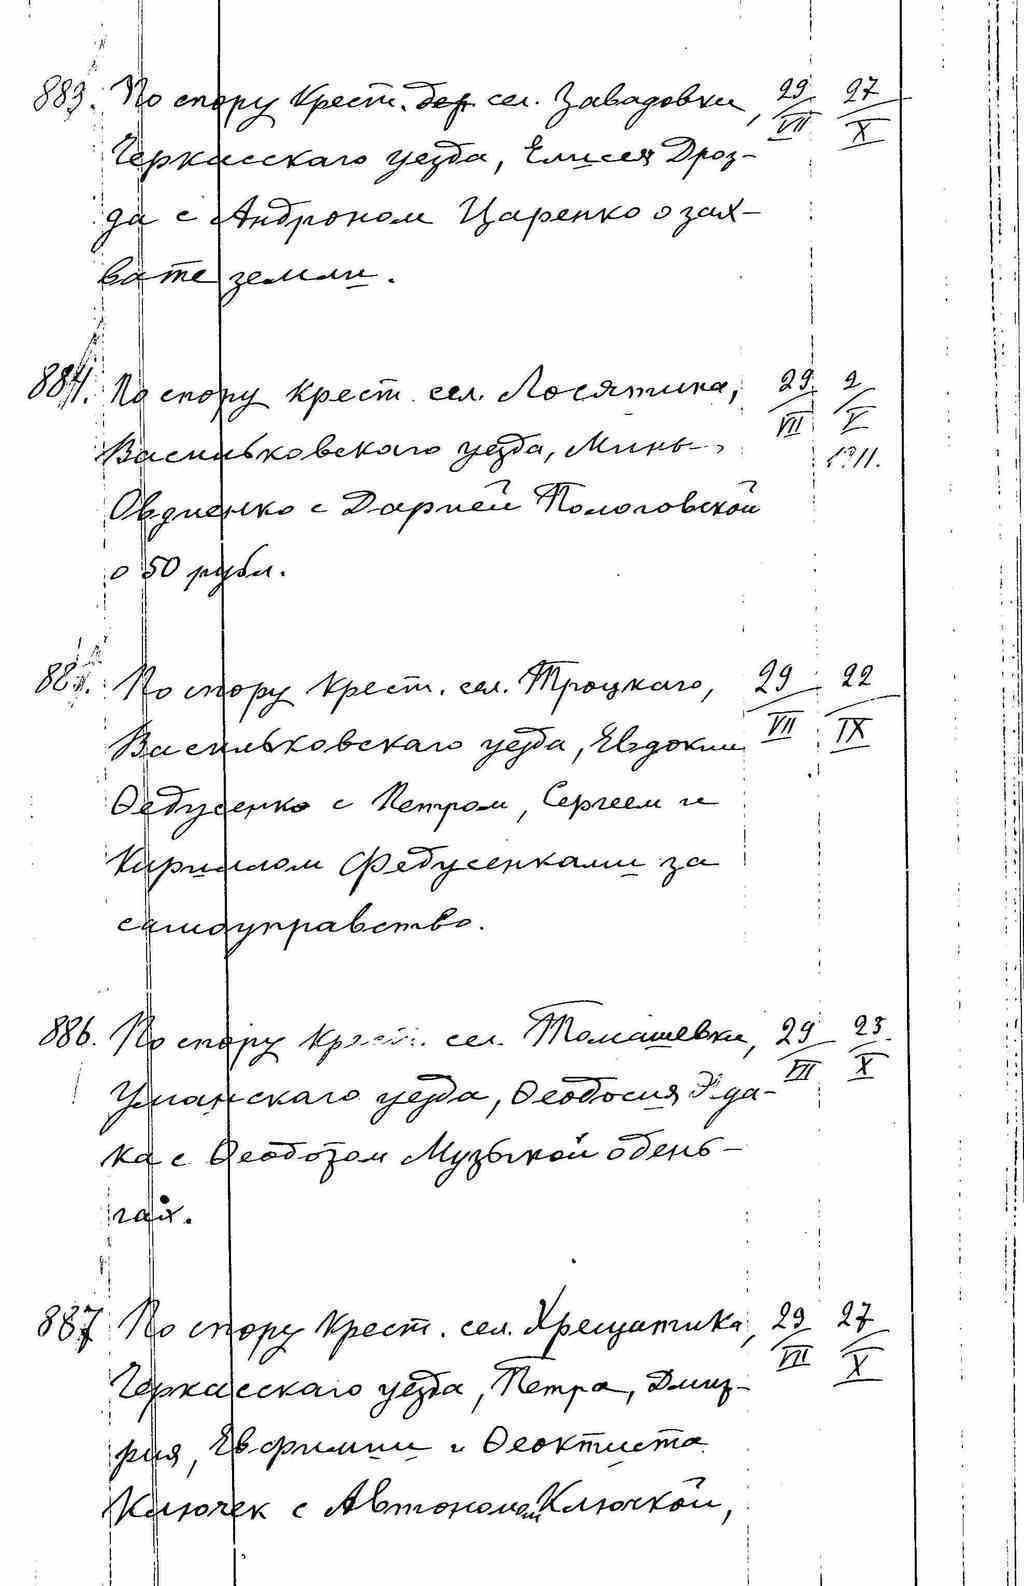 883. По спору Крест. дер сел. Завадовки, 29/VII 27/X
Черкасскаго уезда, Елисея Дроз-
да с Андроном Царенко о зах-
вате земли.
884. По спору крест. сел. Лосятина, 29/VII 2/V
Васильковскаго уезда, Мины 1911.
Овдиенко с Дарией Пологовской
о 50 рубл.
885. По спору Крест. сел. Троцкаго, 29/VII 22/IX
Васильковскаго уезда, Евдокии
Ѳедусенко с Петром, Сергеем и
Кириллом Федусенками за
самоуправство.
886. По спору Крест. сел. Томашевки, 29/VII 23./X
Уманскаго уезда, Ѳеодосия
ка с Ѳеодотом Музыкой о день-
гах.
887 По спору Крест. сел. Хрещатика, 29/VII 27/X
Черкасскаго уезда, Петра, Дмит-
рия, Евфимии и Ѳеоктиста
Ключек с Автономом Ключкой,